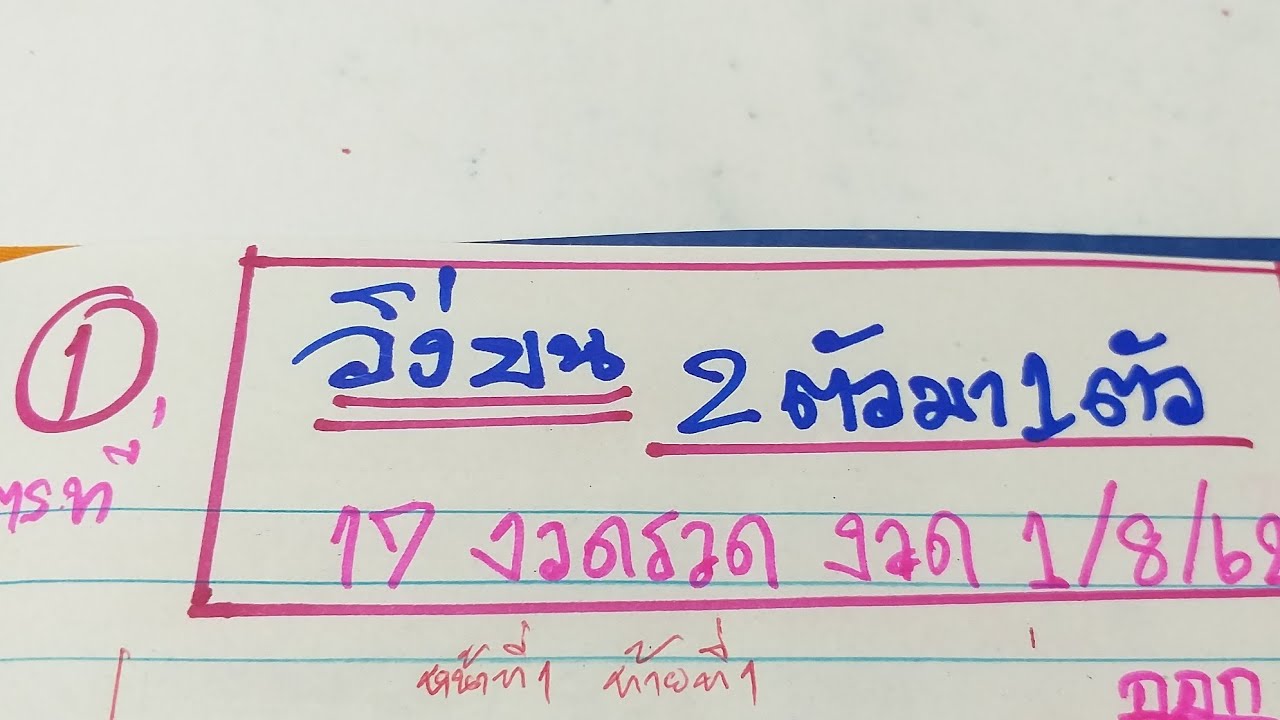 1
วิ่งบน 2 ตัวมา 1 ตัว
ตรที่
17 งวดรวด งวด 1/8/68
ท้ายที่ 1
ออก